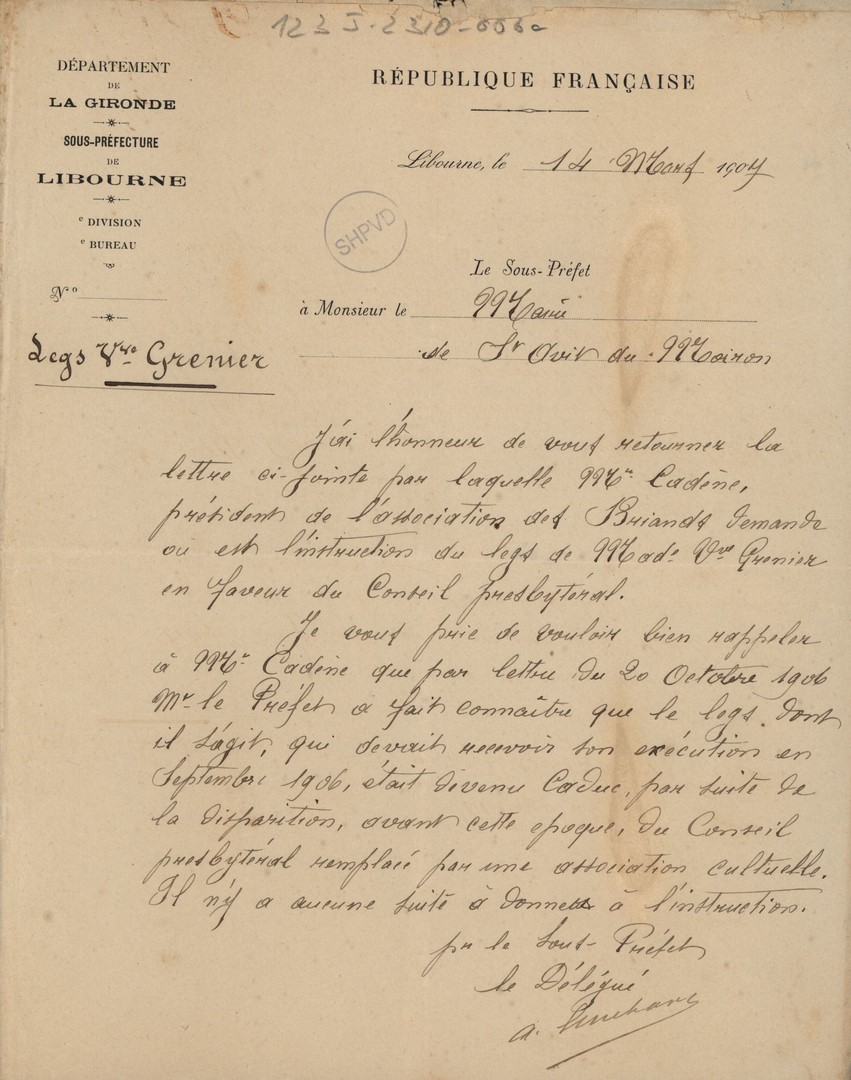 123 J. 2310-006a
DÉPARTEMENT
DE
LA GIRONDE
SOUS-PRÉFECTURE
DE
LIBOURNE
e DIVISION
e BUREAU
N°
Legs Vve Grenier
RÉPUBLIQUE FRANÇAISE
Libourne, le 14 Mars 1907
SHPVD
Le Sous-Préfet
à Monsieur le Maire
de St Avit du Moiron
J'ai l'honneur de vous retourner la
lettre ci-jointe par laquelle Mr Cadène,
président de l'association des Briands demande
où est l'instruction du legs de Made Vve Grenier
en faveur du Conseil presbytéral.
Je vous prie de vouloir bien rappeler
à Mr Cadène que par lettre du 20 Octobre 1906
Mr le Préfet a fait connaître que le legs dont
il s'agit, qui devait recevoir son exécution en
Septembre 1906, était devenu Caduc, par suite de
la disparition, avant cette epoque, du Conseil
presbytéral remplacé par une association cultuelle.
Il n'y a aucune suite à donner à l'instruction.
pr le Sous-Préfet
le Délégué
a.